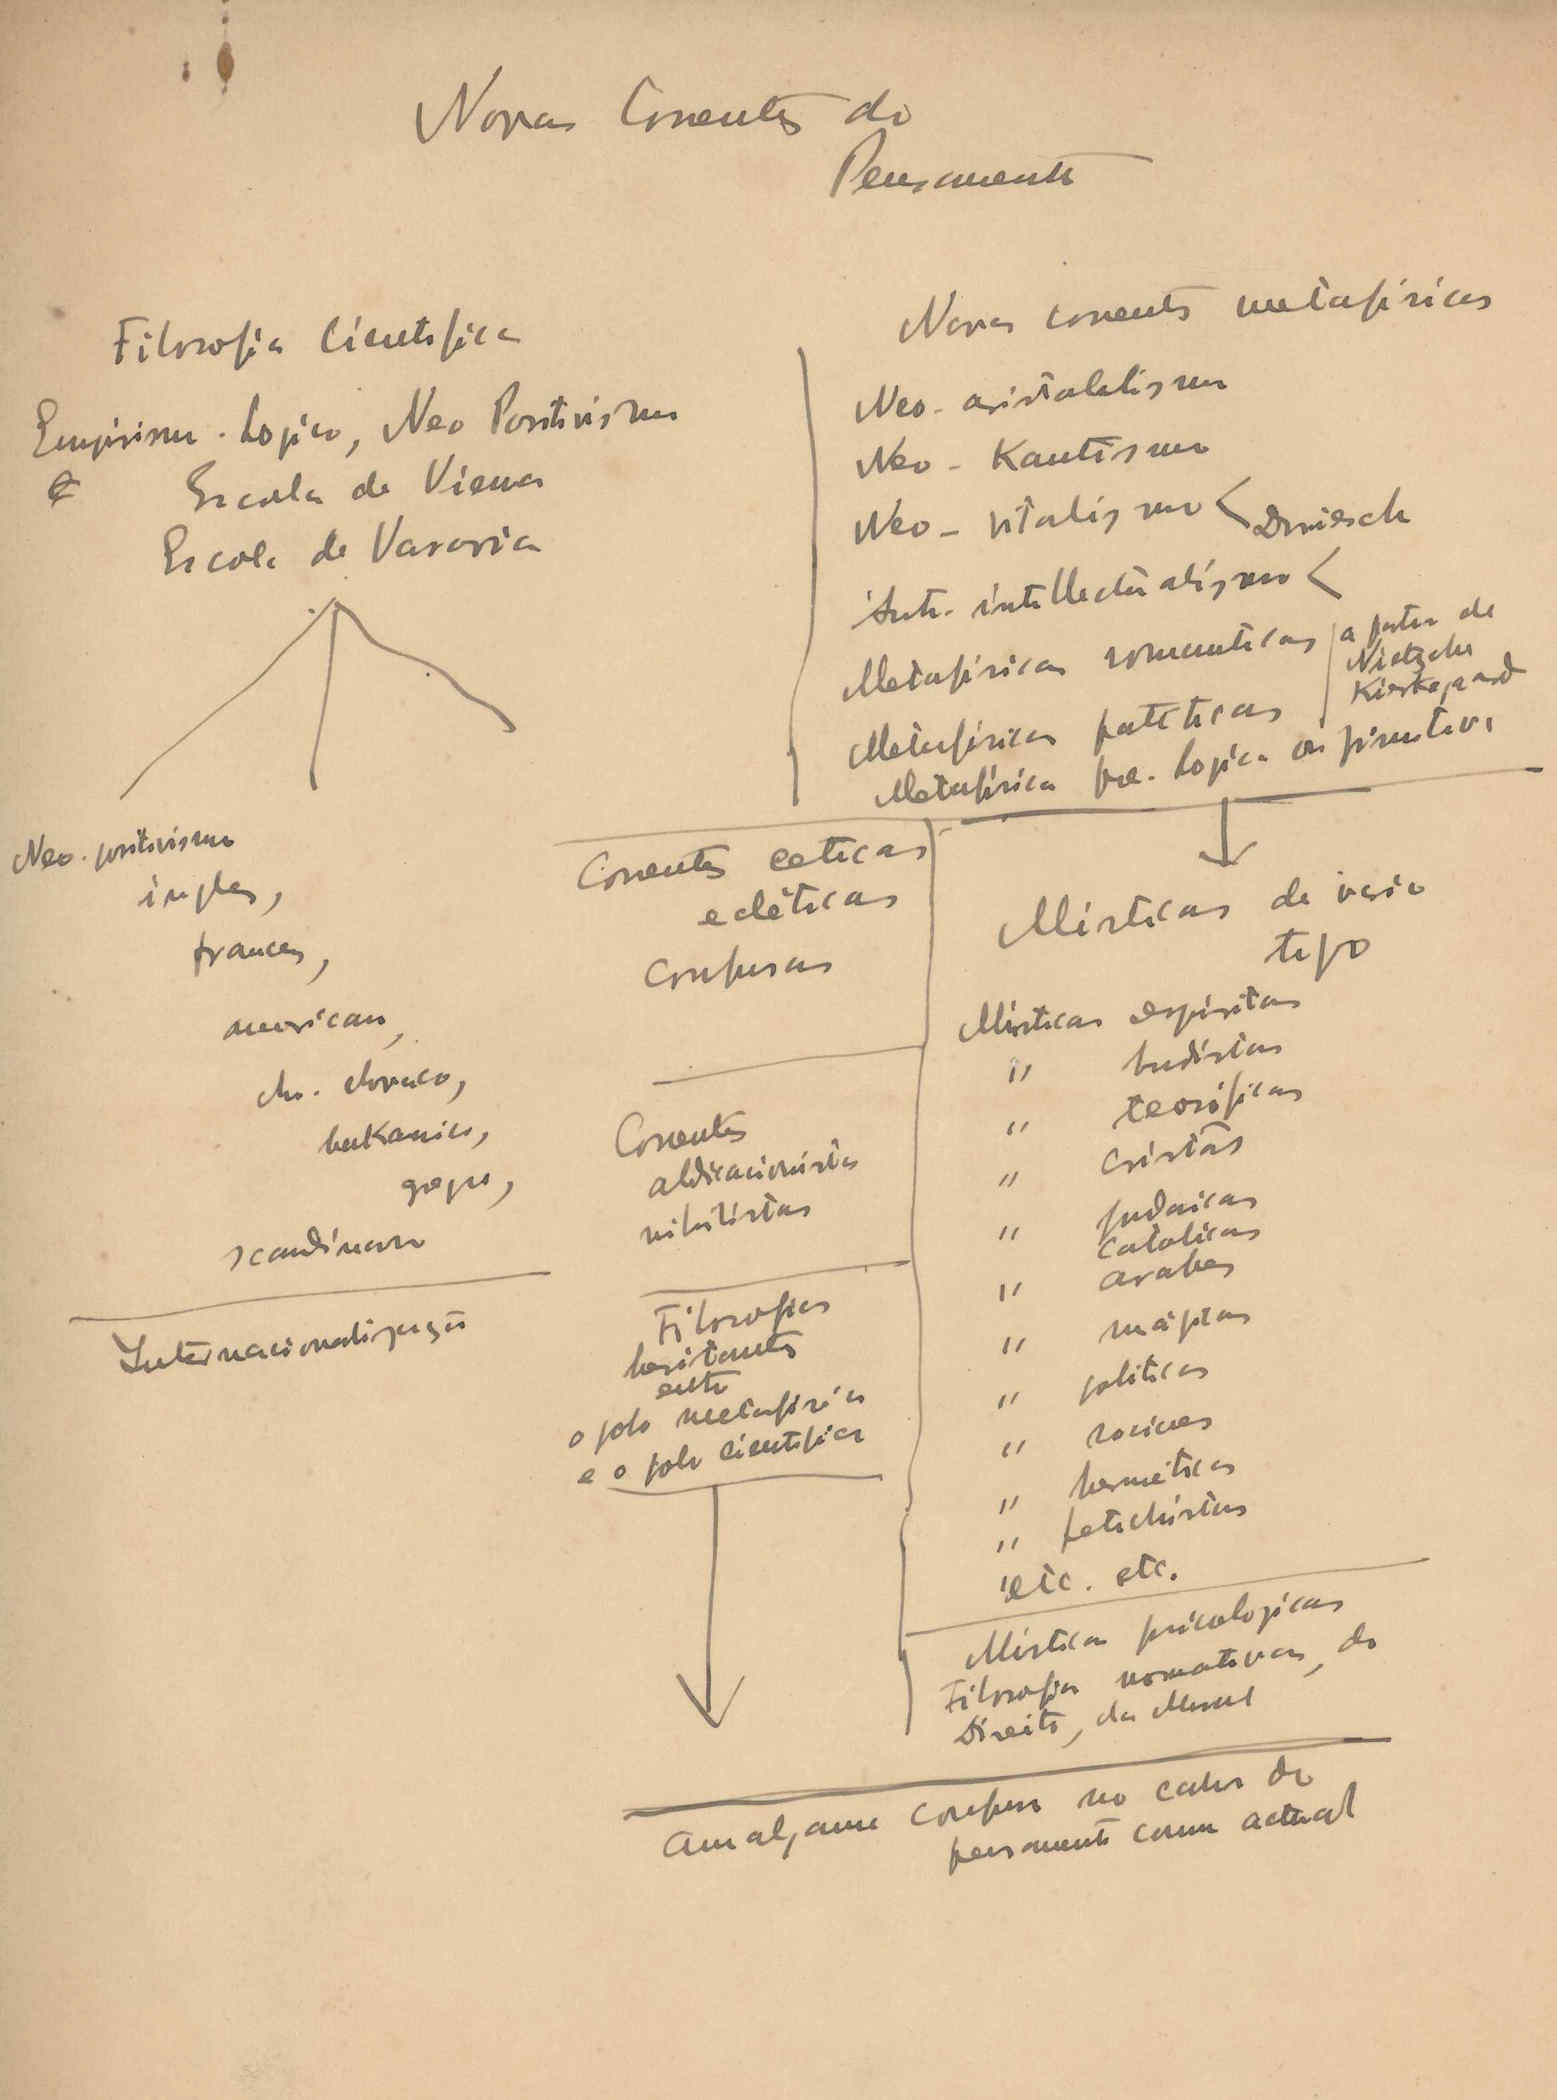 Novas Correntes do
Pensamento
Filosofia Cientifica
Empirismo-Logico, Neo Positivismo
e Escola de Viena
Escola de Varsovia
Neo-positivismo
ingles,
frances,
american,
balkanico,
grego,
scandinavo
Internacionalização
Novas correntes metafisicas
Neo-aristotelismo
Neo-Kantismo
Neo-vitalismo < Driesch
Anti-intellectualismo <
Metafisicas romanticas
Metafisicas patéticas
a partir de
Nietzche
Kierkegaard
Metafisica pre-logica ou primitiva
Correntes ceticas
ecléticas
confusas
Correntes
abdicacionistas
nihilistas
Filosofias
hesitantes
entre
o polo metafisico
e o polo cientifico
Misticas de vario
tipo
Misticas espiritas
" budistas
" teosóficas
" cristãs
" judaicas
catolicas
" arabes
" mágicas
" politicas
" sociaes
" herméticas
" fetichistas
" etc. etc.
Misticas psicologicas
Filosofias normativas, do
Direito, da Moral
Amalgama confuso no calor do
pensamento comum actual